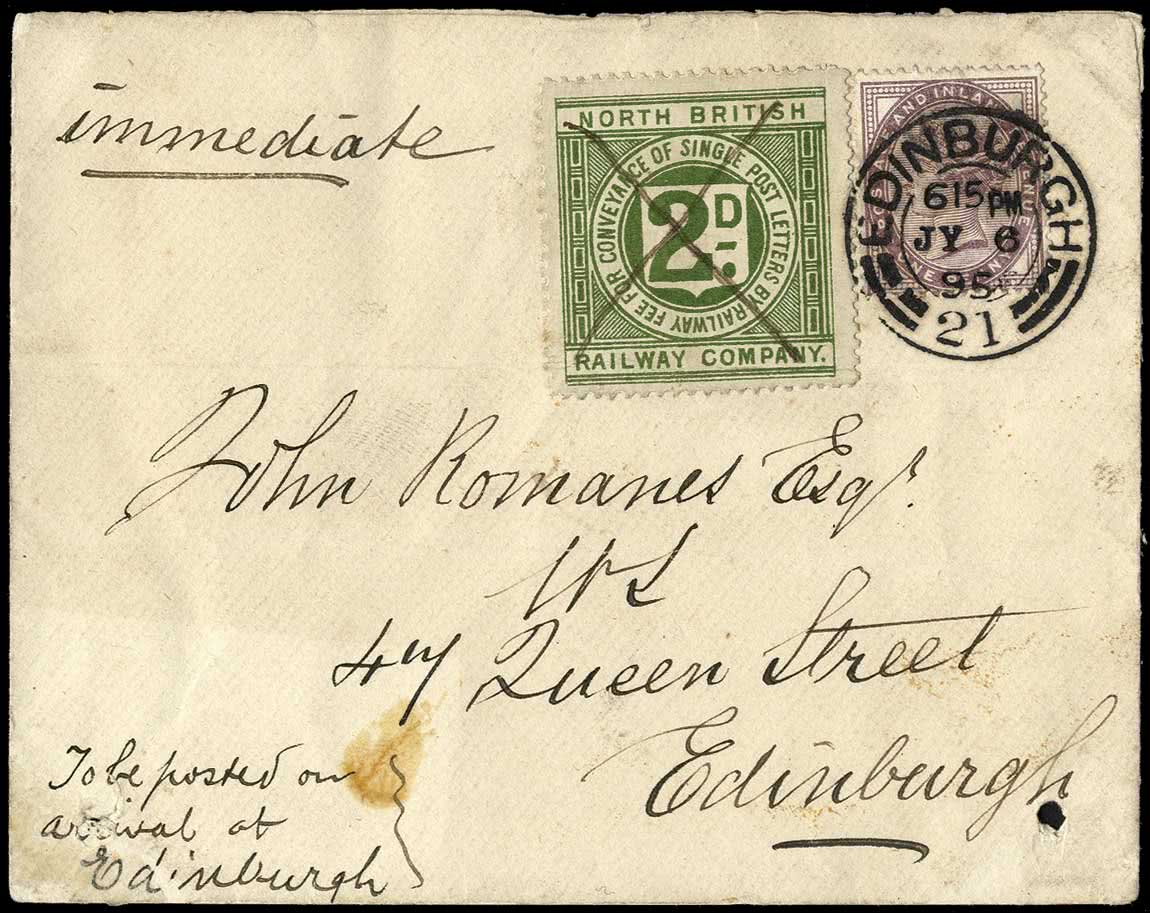 immediate
NORTH BRITISH
FEE FOR CONVEYANCE OF SINGLE POST LETTERS BY RAILWAY
2D.
RAILWAY COMPANY.
POSTAGE AND INLAND REVENUE
ONE PENNY
EDINBURGH
615PM
JY 6
95
21
John Romanes Esqr.
WS
47 Queen Street
Edinburgh
To be posted on
arrival at
Edinburgh